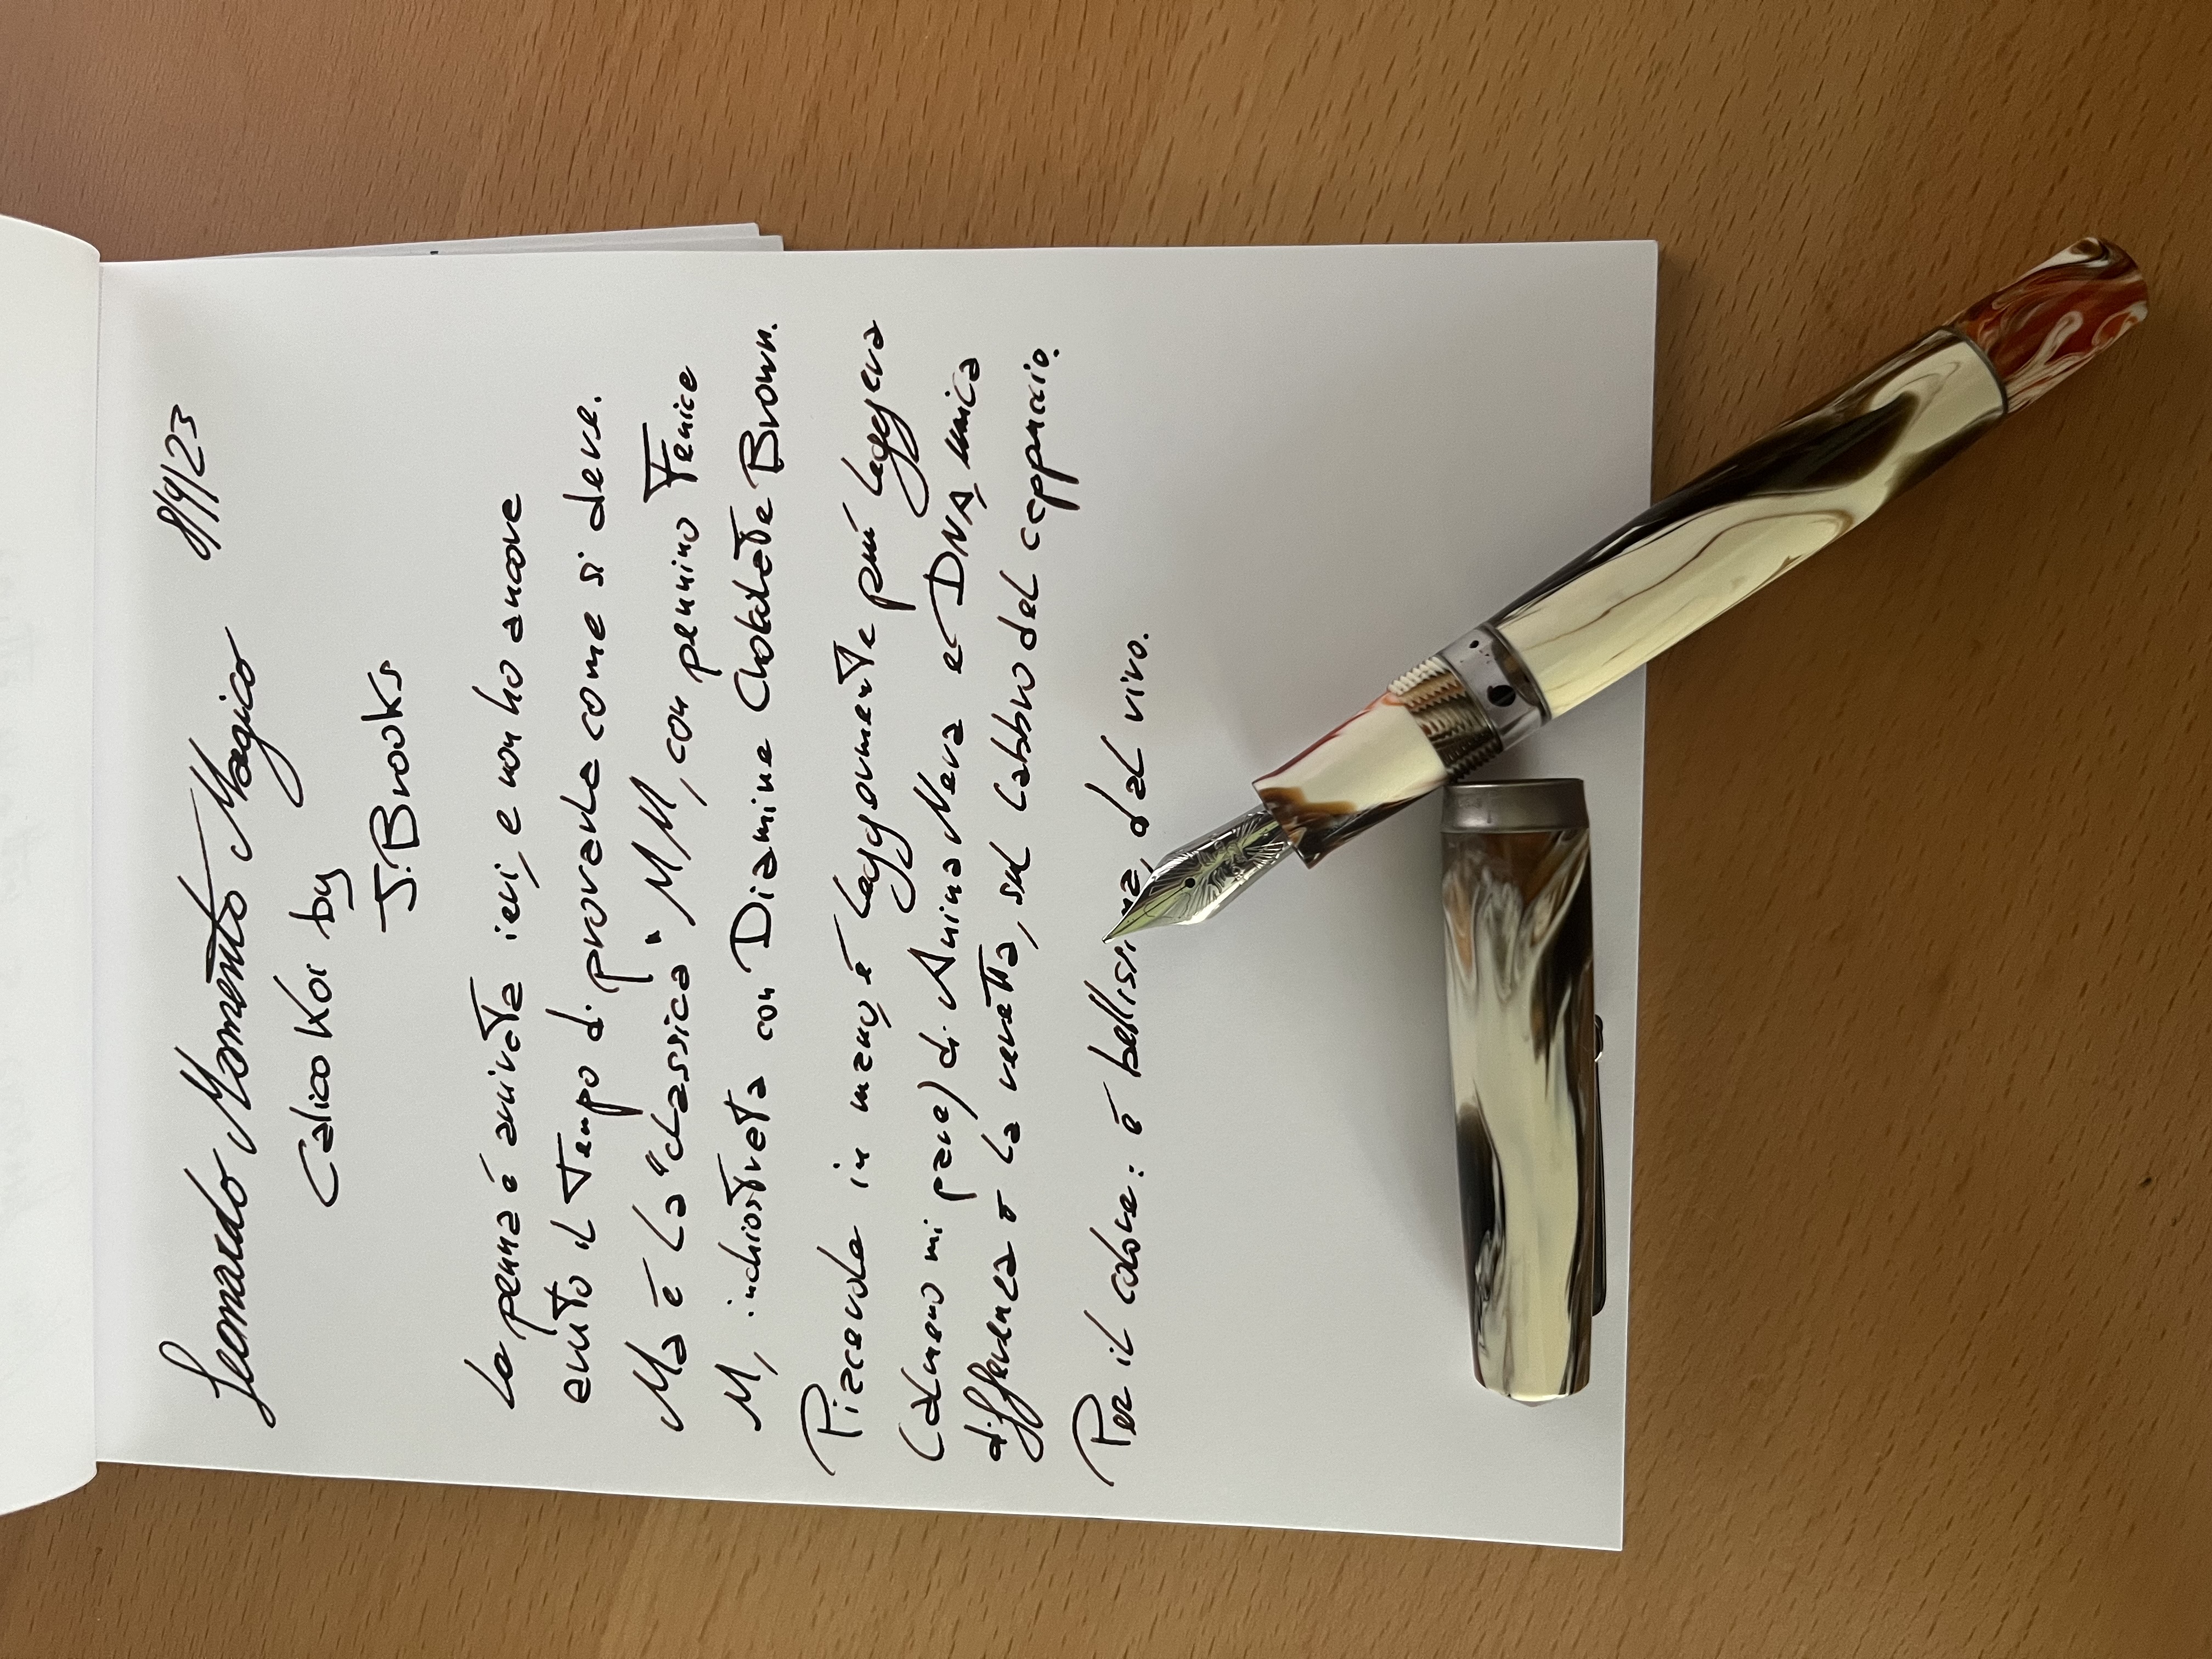 8/9/23
Leonardo Momento Magico
Calico Koi by
J. Brooks
La penna è arrivata ieri, e non ho ancora
avuto il tempo di provarla come si deve.
Ma è la "classica" MM, con pennino Fenice
M, inchiostrata con Diamine Chocolate Brown.
Piacevole in mano, è leggermente più leggera
(almeno mi pare) di Anima Nera e DNA, unica
differenza è la veretta, sul labbro del cappuccio.
Per il colore: è bellissima, dal vivo.